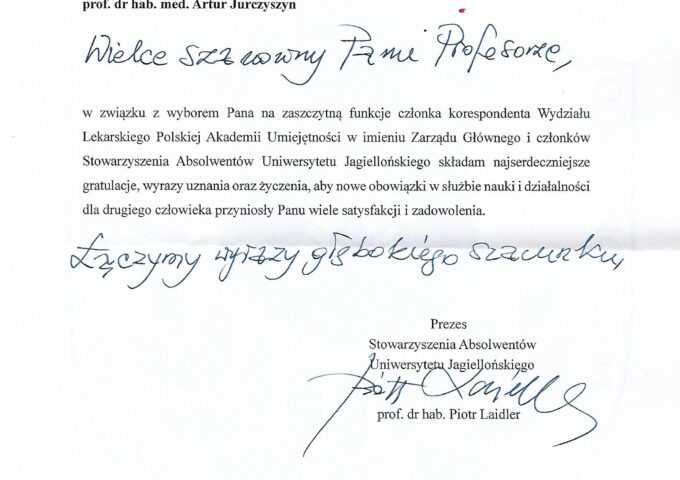 prof. dr hab. med. Artur Jurczyszyn
Wielce szanowny Panie Profesorze,
w związku z wyborem Pana na zaszczytną funkcje członka korespondenta Wydziału
Lekarskiego Polskiej Akademii Umiejętności w imieniu Zarządu Głównego i członków
Stowarzyszenia Absolwentów Uniwersytetu Jagiellońskiego składam najserdeczniejsze
gratulacje, wyrazy uznania oraz życzenia, aby nowe obowiązki w służbie nauki i działalności
dla drugiego człowieka przyniosły Panu wiele satysfakcji i zadowolenia.
Łączymy wyrazy głębokiego szacunku,
Prezes
Stowarzyszenia Absolwentów
Uniwersytetu Jagiellońskiego
Piotr Laidler
prof. dr hab. Piotr Laidler